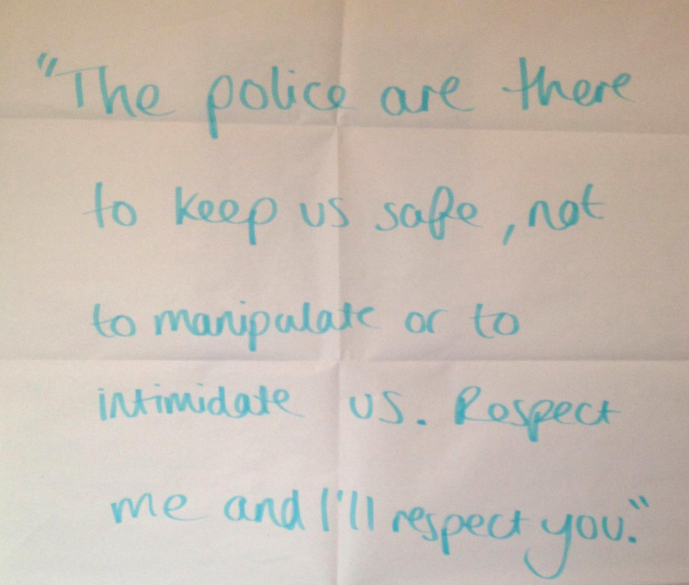 "The police are there
to keep us safe, not
to manipulate or to
intimidate us. Respect
me and I'll respect you."